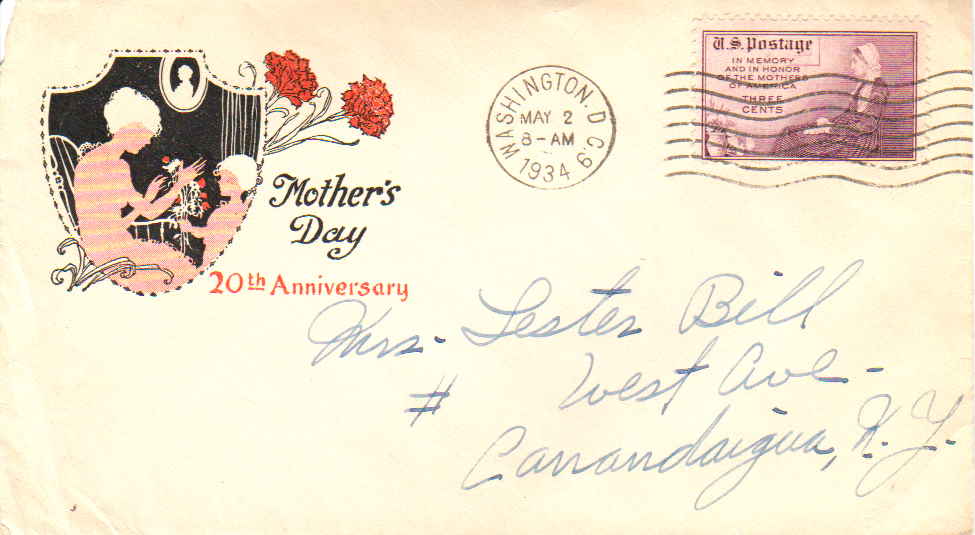 U.S. Postage
IN MEMORY
AND IN HONOR
OF THE MOTHERS
OF AMERICA
THREE
CENTS
WASHINGTON, D.C. 9
MAY 2
8-AM
1934
Mother's
Day
20th Anniversary
Mrs. Lester Bill
# West Ave.
Canandaigua, N.Y.